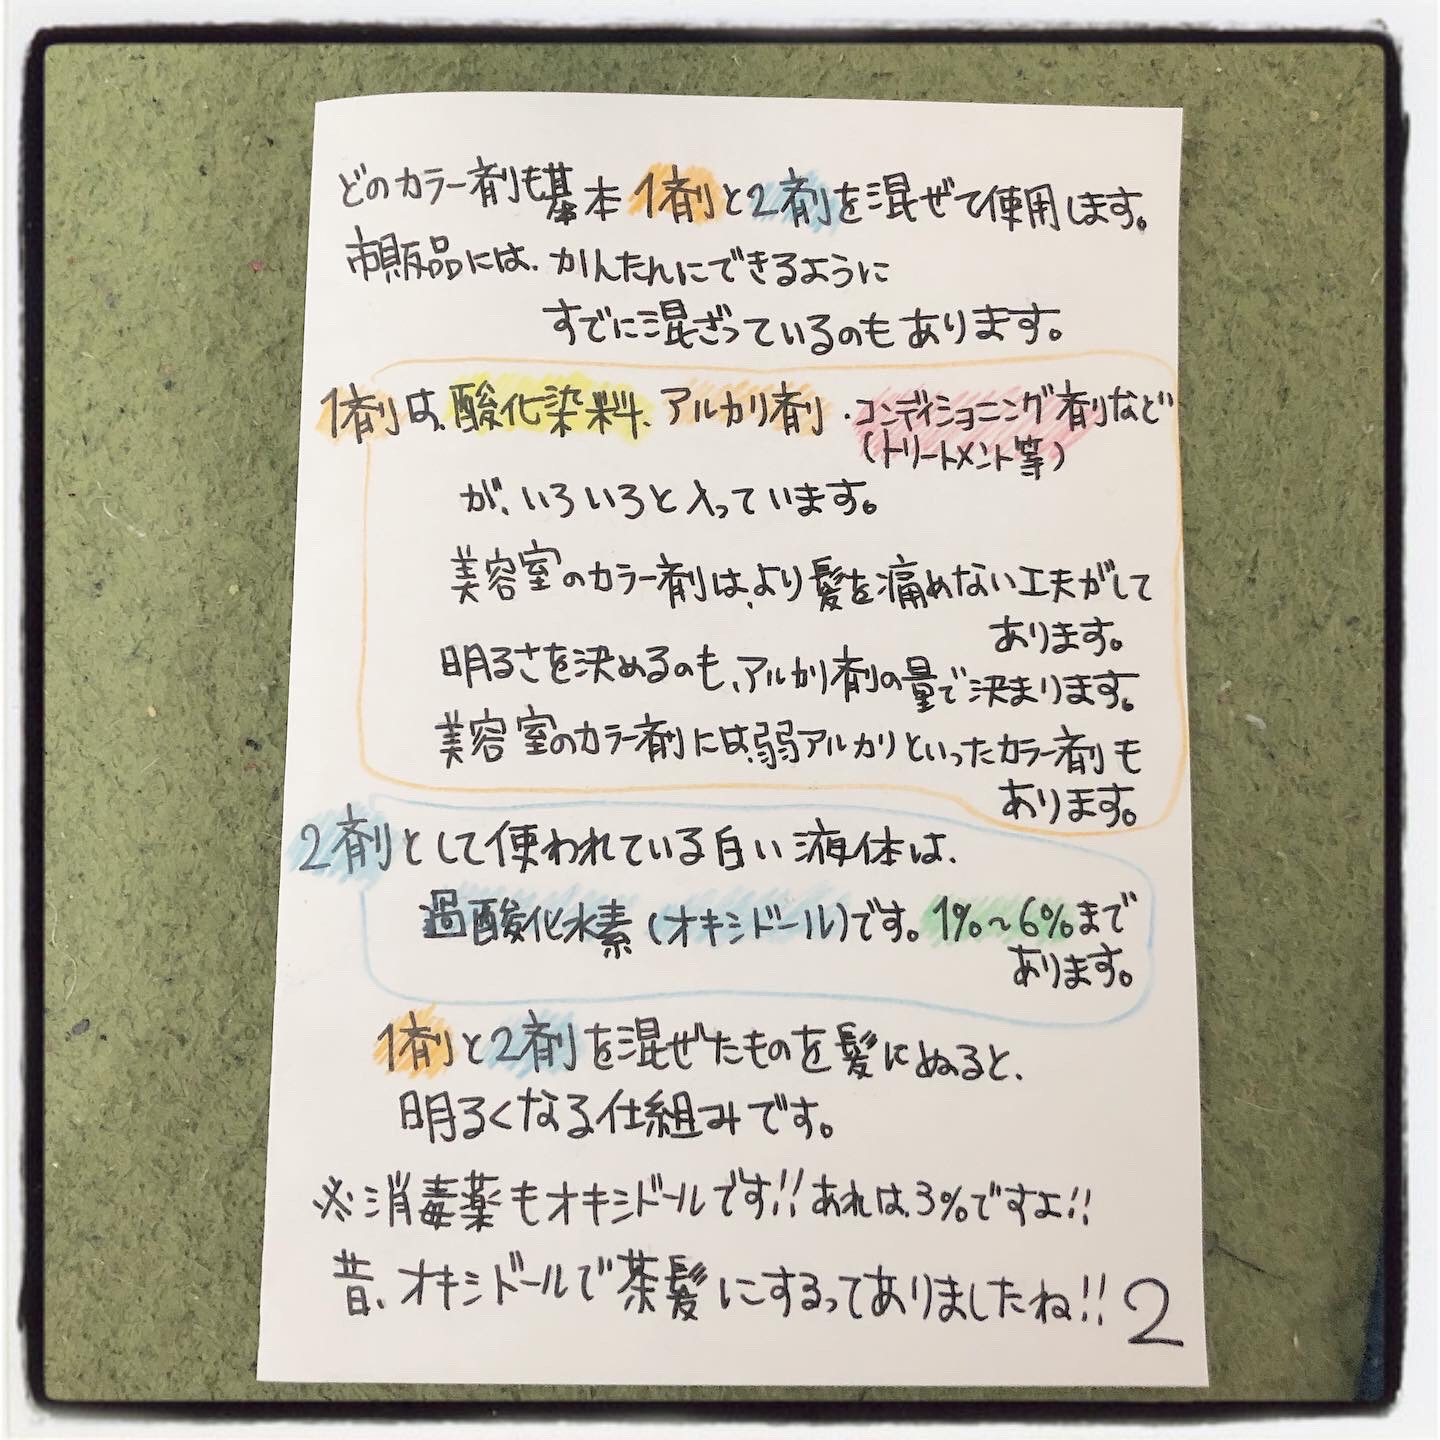 どのカラー剤も基本1剤と2剤を混ぜて使用します。
市販品には、かんたんにできるように
すでに混ざっているのもあります。
1剤は、酸化染料、アルカリ剤・コンディショニング剤など
(トリートメント等)
が、いろいろと入っています。
美容室のカラー剤は、より髪を痛めない工夫がして
あります。
明るさを決めるのも、アルカリ剤の量で決まります。
美容室のカラー剤には、弱アルカリといったカラー剤も
あります。
2剤として使われている白い液体は、
過酸化水素(オキシドール)です。1%~6%まで
あります。
1剤と2剤を混ぜたものを髪にぬると、
明るくなる仕組みです。
※消毒薬もオキシドールです!!あれは、3%ですよ!!
昔、オキシドールで茶髪にするってありましたね!!
2